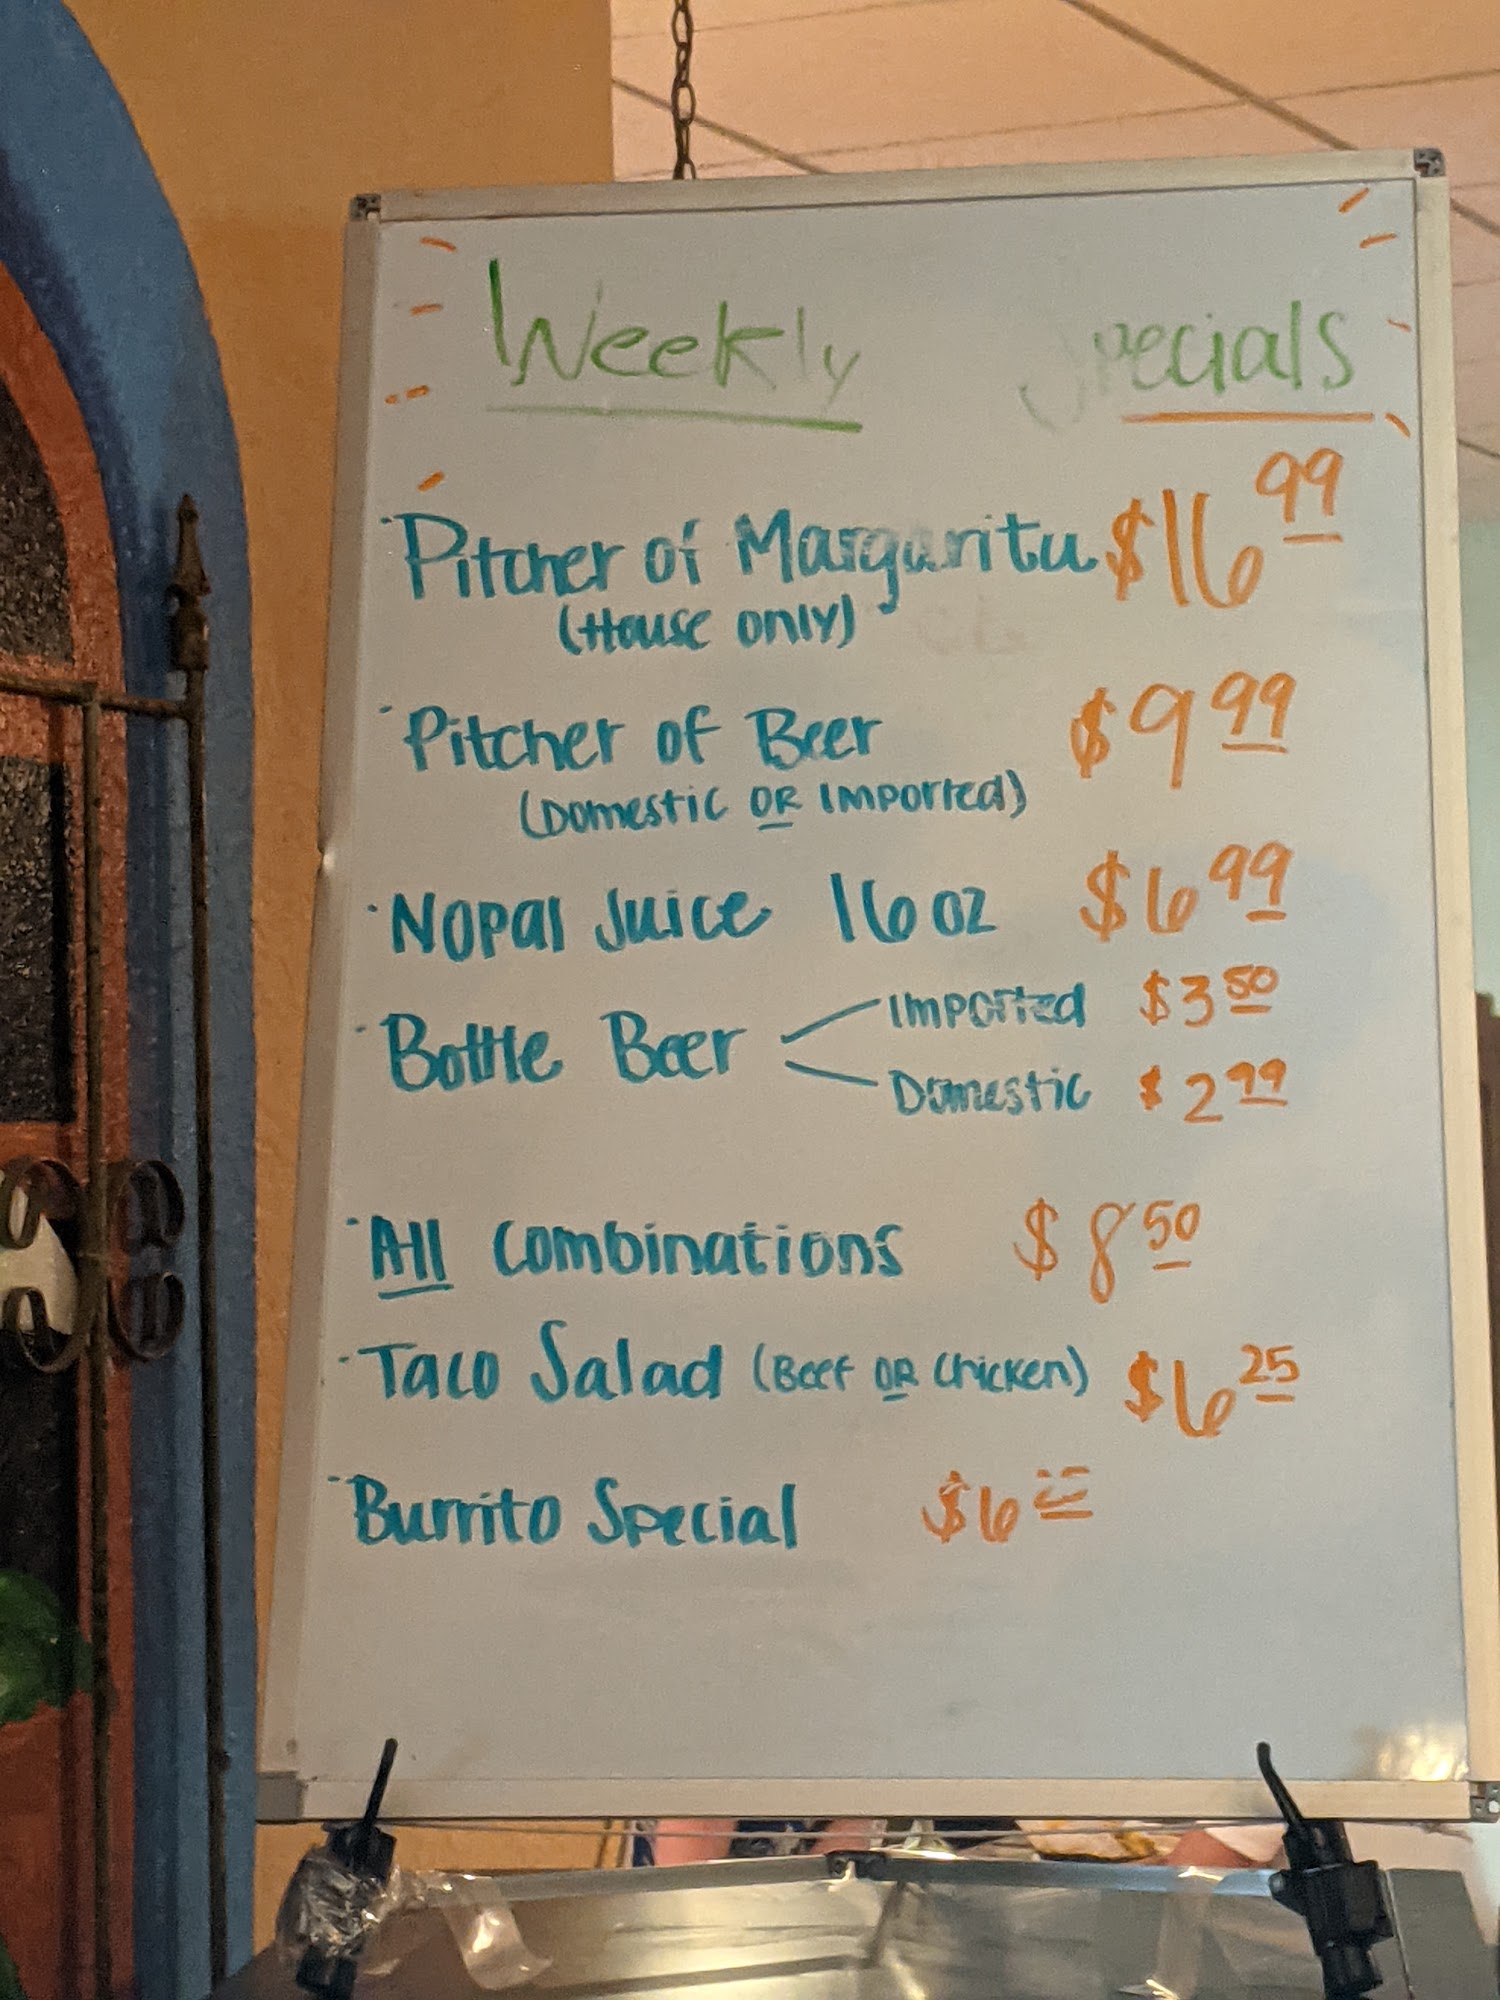 Weekly Specials
·Pitcher of Margarita $16 99
(House only)
·Pitcher of Beer $9 99
(Domestic OR Imported)
·Nopal Juice 16 oz $6 99
·Bottle Beer Imported $3 50
Domestic $2 99
·All Combinations $8 50
·Taco Salad (Beef OR Chicken) $6 25
·Burrito Special $6